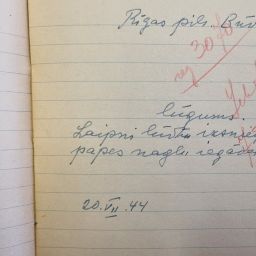 Rīgas pils. Būv
30/
lūgums.
Laipni lūdzu izsnie
papes naglu iegādei
20.VII.44